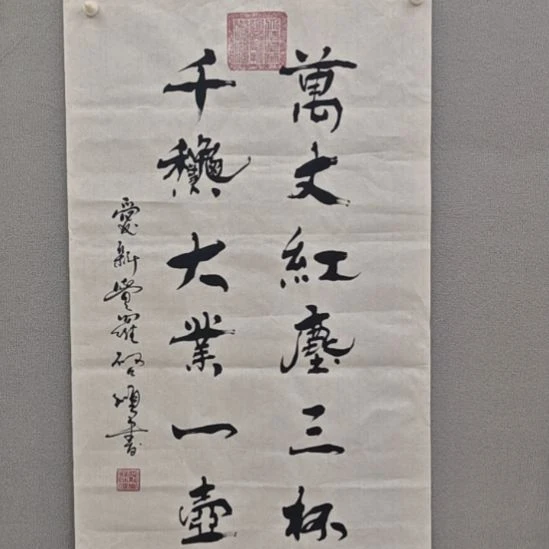 萬丈紅塵三杯
千龝大業一壺
愛新覺羅書